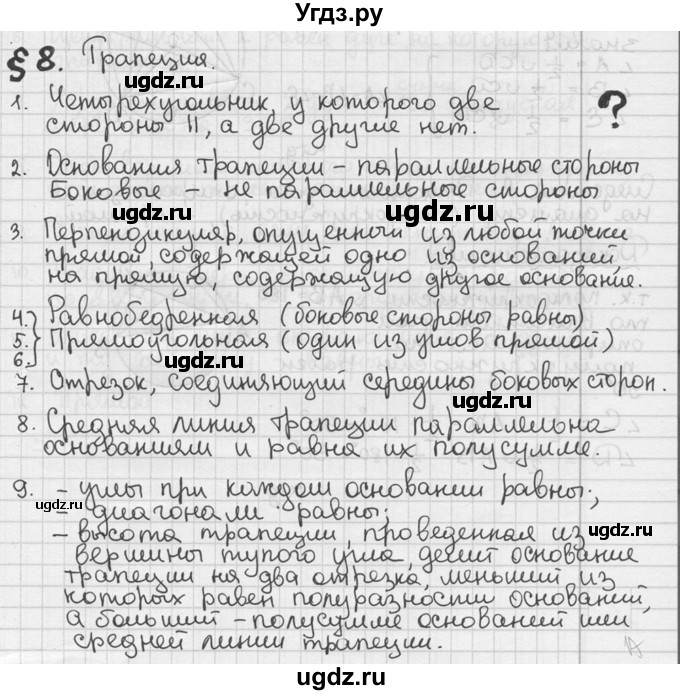 Угдз.ру
§8. Трапеция.
ugdz.ru
1. Четырехугольник, у которого две
стороны II, а две другие нет.
?
ugdz.ru
ugdz.ru
2. Основания трапеции – параллельные стороны
Боковые – не параллельные стороны
ugdz.ru
ugdz.ru
3. Перпендикуляр, опущенный из любой точки
прямой, содержащей одно из оснований
на прямую, содержащую другое основание.
4. Равнобедренная (боковые стороны равны)
5. Прямоугольная (один из углов прямой)
6.
ugdz.ru
ugdz.ru
7. Отрезок, соединяющий середины боковых сторон.
ugdz.ru
8. Средняя линия трапеции параллельна
основаниям и равна их полусумме.
ugdz.ru
9. – углы при каждом основании равны;
– диагонали равны;
ugdz.ru
ugdz.ru
– высота трапеции, проведенная из
вершины тупого угла, делит основание
трапеции на два отрезка, меньший из
которых равен полуразности оснований,
а больший – полусумме оснований или
средней линии трапеции.
ugdz.ru
ugdz.ru
ugdz.ru